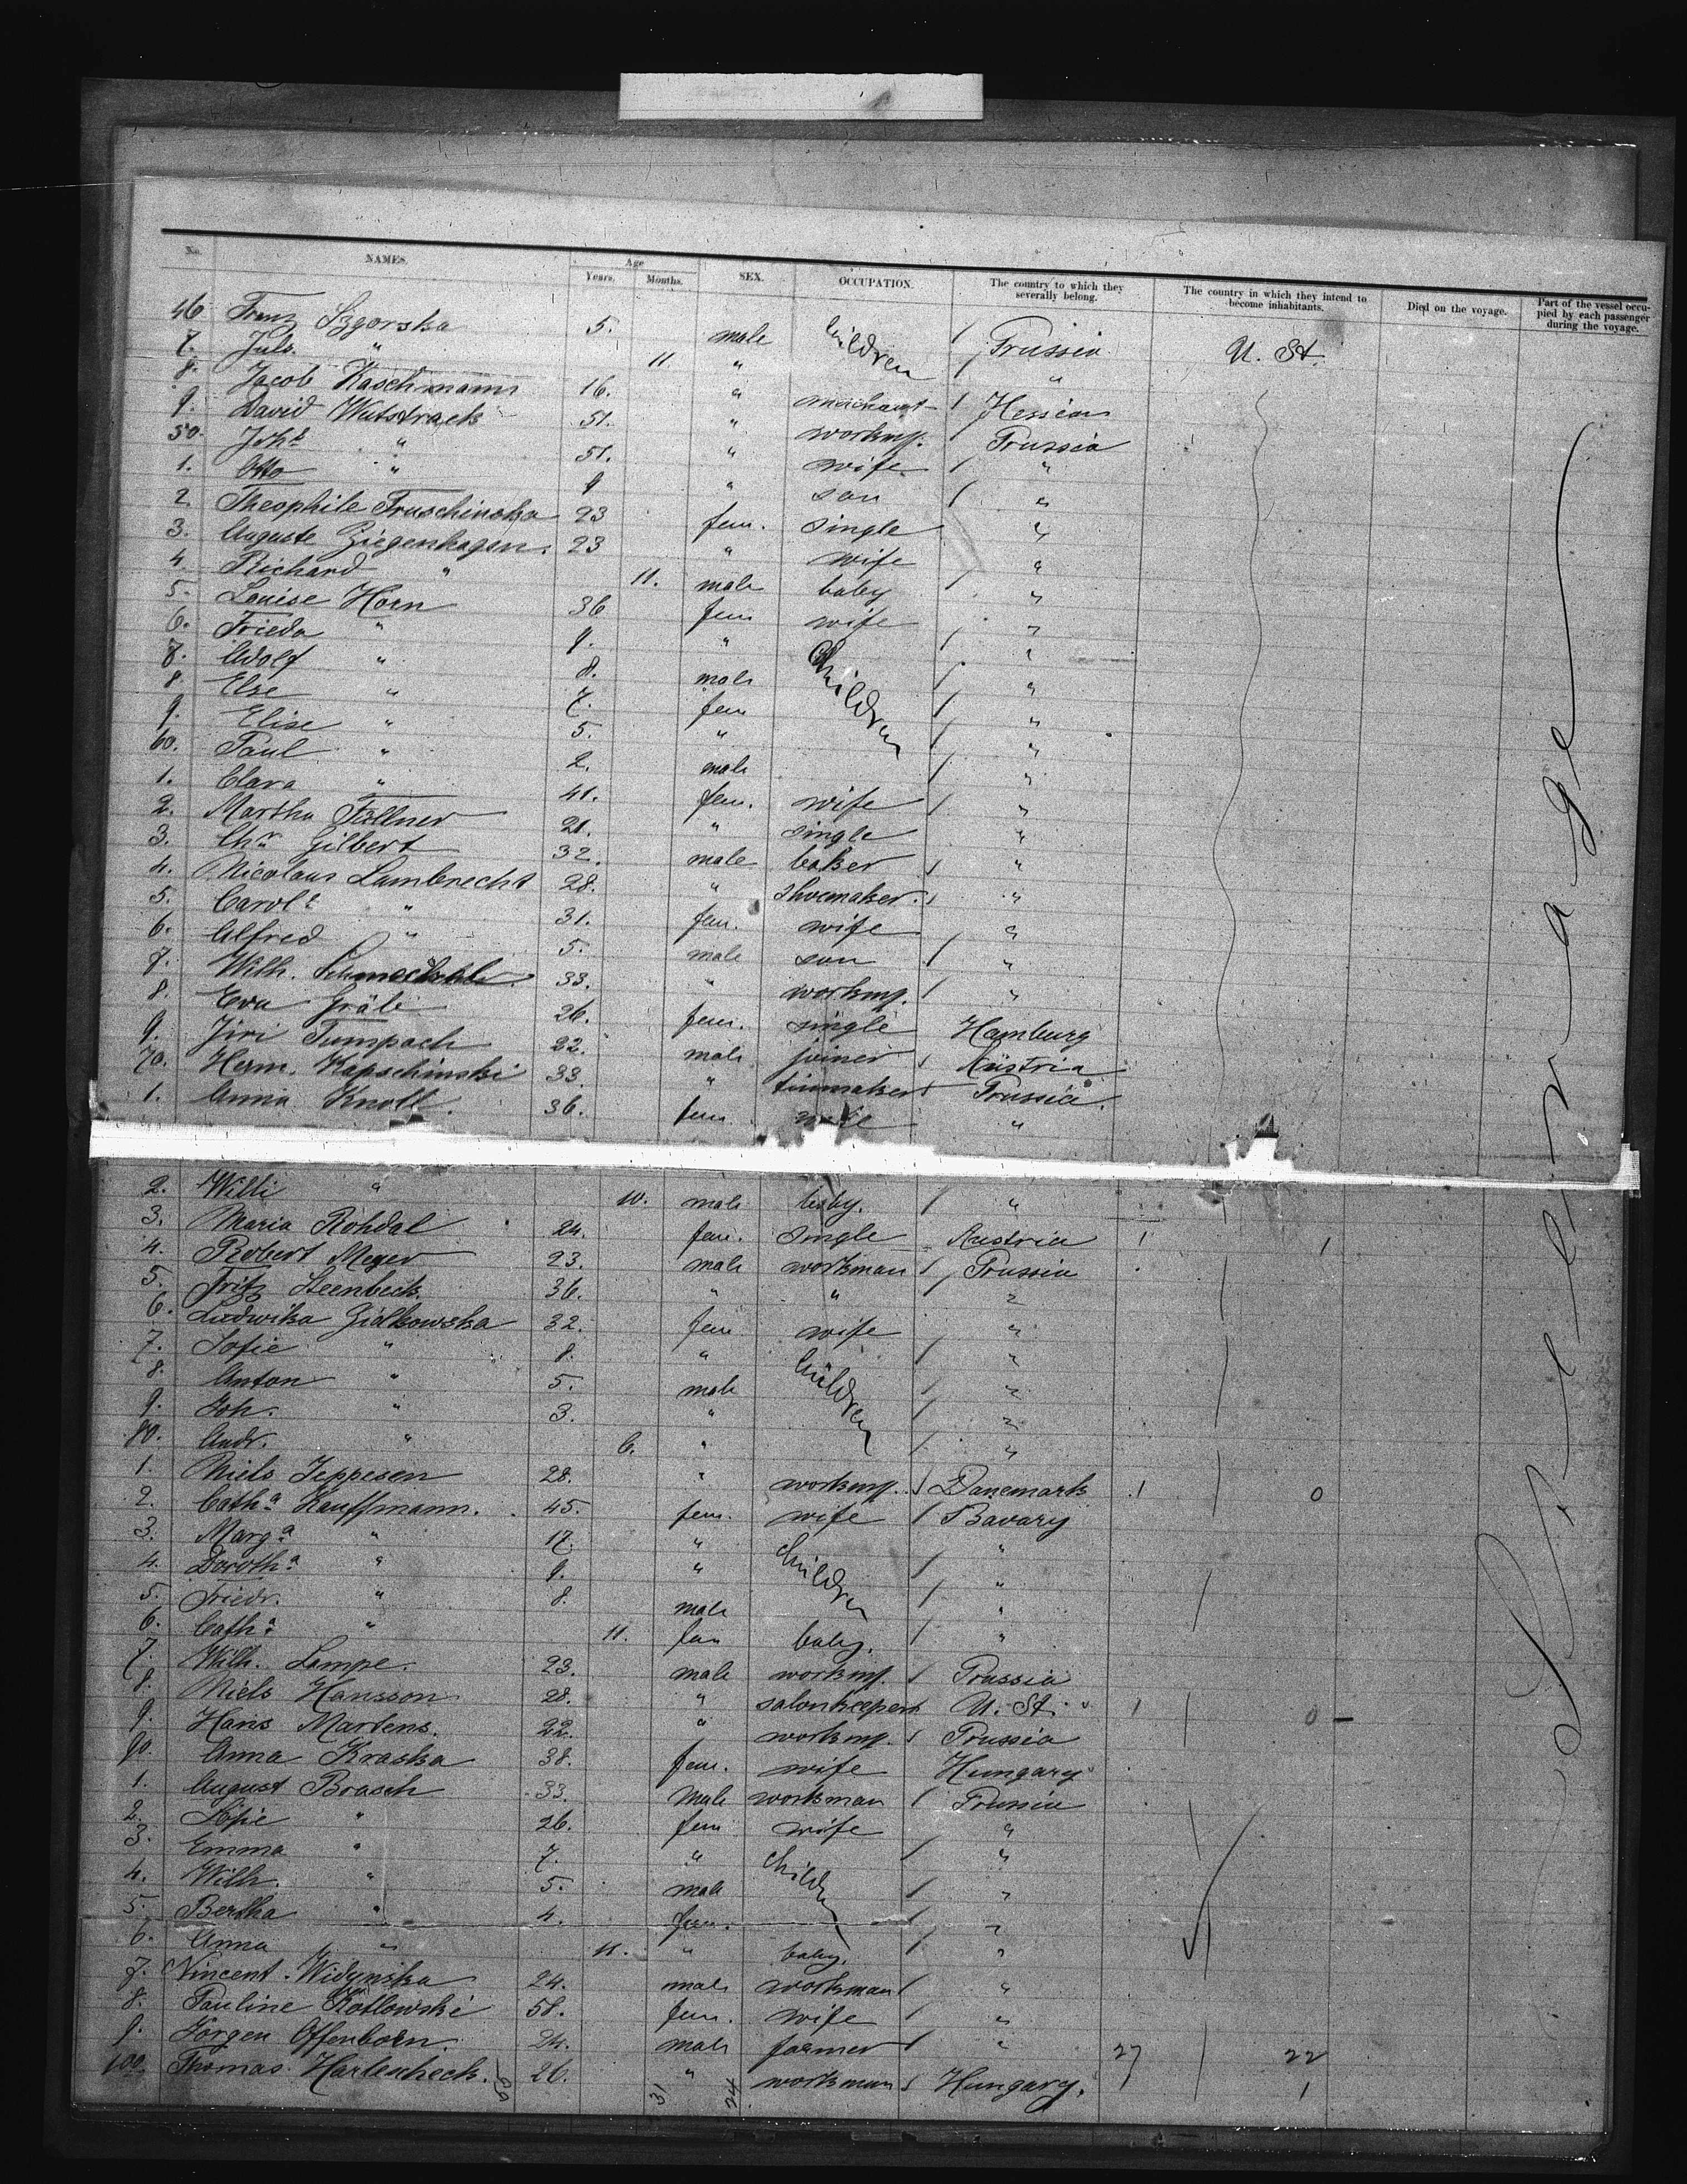 No. NAMES. Age Years. Months. SEX. OCCUPATION. The country to which they severally belong. The country in which they intend to become inhabitants. Died on the voyage. Part of the vessel occupied by each passenger during the voyage.
46 Franz Szgorska 5. male Children / Prussia U. St.
7. Juls. " 11 " / "
8. Jacob Kaschmann 16. " / Hessian
9. David Wutstrack 51. " workmg. Prussia
50. Joh.a " 51. " wife / "
1. Otto " 9 " son / "
2. Theophile Truschinska 23 fem. single "
3. Auguste Ziegenhagen. 23 " wife "
4. Richard " 11. male baby / "
5. Louise Horn 36 fem wife / "
6. Frieda " 9. " Children / "
7. Adolf " 8. male / "
8. Else " 7. fem / "
9. Elise " 5. " / "
60. Paul " 2. male / "
1. Clara " 41. fem. wife / "
2. Martha Fallner 21. " single "
3. Chr. Gilbert 32. male baker / "
4. Nicolaus Lambrecht 28. " Shoemaker. / "
5. Carol.e " 31. fem. wife / "
6. Alfred " 5. male son / "
7. Wilh. 33. " workmg. / "
8. Eva Gräli 26. fem. single Hamburg
9. Jiri Tumpach 32. male joiner / Austria
70. Herm. Kapschinski 33. " / Prussia.
1. Anna Knoll. 36. fem. wife "
2. Willi " 10. male baby. / "
3. Maria Rohdal 24. fem. single Austria 1 1
4. Robert Meyer 23. male workman / Prussia
5. Fritz Steenbeck. 36. " " "
6. Ludwika Zidkowska 32. fem wife / "
7. Sofie " 8. " Children / "
8. Anton " 5. male / "
9. Joh. " 3. " / "
80. Andr. " 6. " / "
1. Niels Jeppesen 28. " workmg. / Danemark 1 0
2. Cath.a Kauffmann. 45. fem. wife / Bavary
3. Marg.a " 17. " Children "
4. Doroth.a " 9. " / "
5. Friedr. " 8. male / "
6. Cath.a " 11. fem baby. / "
7. Wilh. Lampe. 23. male workmg. / Prussia
8. Niels Hansson 28. " salonkeeper / U. St. 1 0
9. Hans Martens. 22. " workmg. / Prussia
90. Anna Kraska 38. fem. wife Hungary
1. August Brasch 33. male workman / Prussia
2. Sofie " 26. fem wife "
3. Emma " 7. " Children / "
4. Wilh. " 5. male / "
5. Bertha " 4. fem. / "
6. Anna " 11. " baby. / "
7. Vincent Widynska 24. male workman / "
8. Pauline Kotlowski 58. fem. wife / "
9. Jörgen Offenborn. 24. male farmer / " 27 22
100. Thomas Harlescheck. 26. " workman / Hungary. 1 1
31 24
Steerage